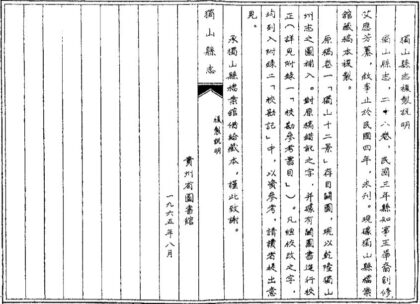 獨山縣志複製說明
獨山縣志,二十六卷,民國三年縣知事王華裔創修
艾應芳纂,敘事止於民國四年,未刊。現據獨山縣檔案
館藏稿本複製。
原稿卷一「獨山十二景」存目闕圖,現以乾隆獨山
州志之圖補入。對原稿錯訛之字,并據有關圖書進行校
正(詳見附錄一「校勘參考書目」)。凡經修改之字,
均列入附錄二「校勘記」中,以資參考,請讀者提出意
見。
承獨山縣檔案館借給藏本,謹此致謝。
獨山縣志
複製說明
貴州省圖書館
一九六五年八月